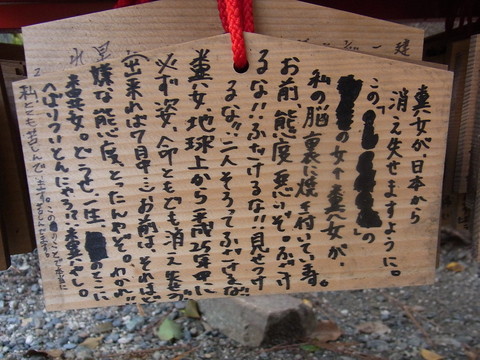 糞女が、日本から
消え失せますように。
この、の
の女、糞女が、
私の脳裏に焼き付いてい毒。
お前、態度悪いぞ。ふざけ
るな!!ふざけるな!!見せつけ
るな!!二人そろってふざけるな!!
糞女、地球上から平成25年中に
必ず姿、命ともでも消え失
(出来れば7月中)お前はそれほど
嫌な態度とったんやぞ。わかれ!!
糞女。どうせ一生、のそこに
へばりついとんにゃろ!?糞寒し。
私とても苦しんでいます。このことで本当に